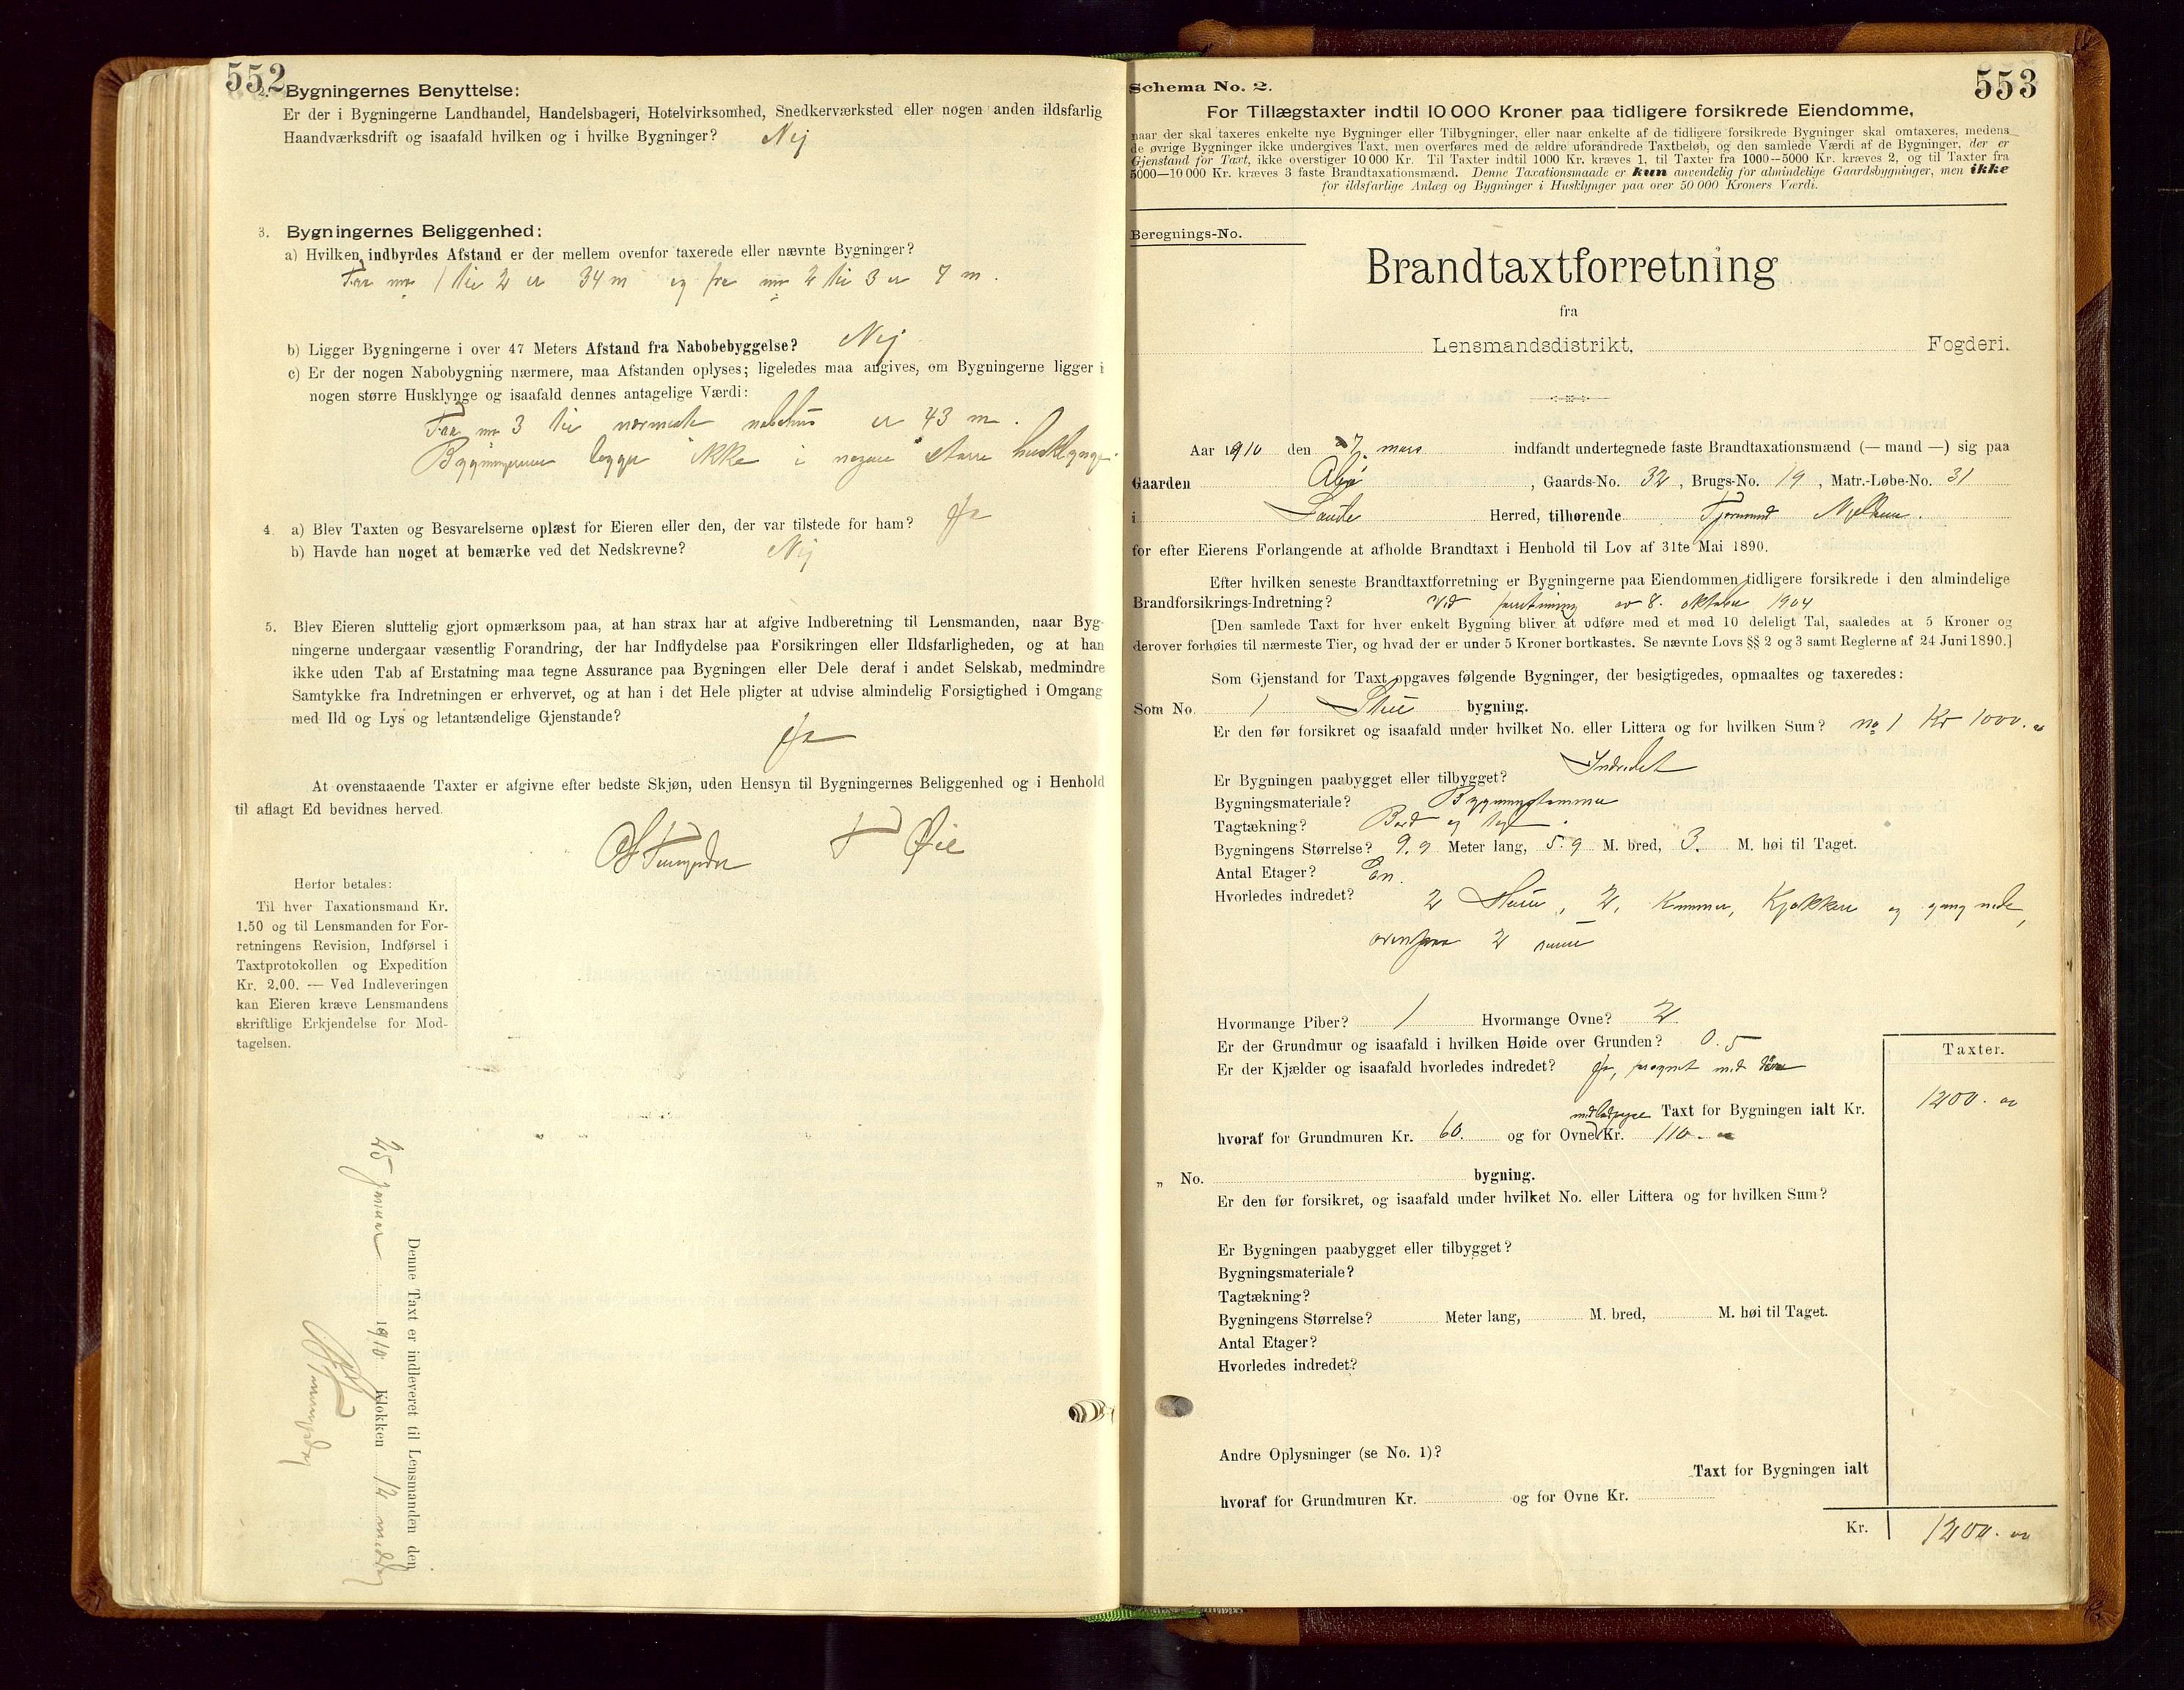 552
2. Bygningernes Benyttelse:
Er der i Bygningerne Landhandel, Handelsbageri, Hotelvirksomhed, Snedkerværksted eller nogen anden ildsfarlig
Haandværksdrift og isaafald hvilken og i hvilke Bygninger? Nej
3. Bygningernes Beliggenhed:
a) Hvilken indbyrdes Afstand er der mellem ovenfor taxerede eller nævnte Bygninger?
Fra no 1 til 2 er 34 m og fra no 2 til 3 er 7 m.
b) Ligger Bygningerne i over 47 Meters Afstand fra Nabobebyggelse? Nej
c) Er der nogen Nabobygning nærmere, maa Afstanden oplyses; ligeledes maa angives, om Bygningerne ligger i
nogen større Husklynge og isaafald dennes antagelige Værdi:
Fra no 3 til nærmeste nabohus er 43 m.
Bygningerne legger ikke i nogen større husklynge.
4. a) Blev Taxten og Besvarelserne oplæst for Eieren eller den, der var tilstede for ham? Ja
b) Havde han noget at bemærke ved det Nedskrevne? Nej
5. Blev Eieren sluttelig gjort opmærksom paa, at han strax har at afgive Indberetning til Lensmanden, naar Byg-
ningerne undergaar væsentlig Forandring, der har Indflydelse paa Forsikringen eller Ildsfarligheden, og at han
ikke uden Tab af Erstatning maa tegne Assurance paa Bygningen eller Dele deraf i andet Selskab, medmindre
Samtykke fra Indretningen er erhvervet, og at han i det Hele pligter at udvise almindelig Forsigtighed i Omgang
med Ild og Lys og letantændelige Gjenstande?
Ja
At ovenstaaende Taxter er afgivne efter bedste Skjøn, uden Hensyn til Bygningernes Beliggenhed og i Henhold
til aflagt Ed bevidnes herved.
T Øie
Herfor betales:
Til hver Taxationsmand Kr.
1.50 og til Lensmanden for For-
retningens Revision, Indførsel i
Taxtprotokollen og Expedition
Kr. 2.00. — Ved Indleveringen
kan Eieren kræve Lensmandens
skriftlige Erkjendelse for Mod-
tagelsen.
Denne Taxt er indleveret til Lensmanden den
25 januar 1910 Klokken 12 middag
553
Schema No. 2.
For Tillægstaxter indtil 10 000 Kroner paa tidligere forsikrede Eiendomme,
naar der skal taxeres enkelte nye Bygninger eller Tilbygninger, eller naar enkelte af de tidligere forsikrede Bygninger skal omtaxeres, medens
de øvrige Bygninger ikke undergives Taxt, men overføres med de ældre uforandrede Taxtbeløb, og den samlede Værdi af de Bygninger, der er
Gjenstand for Taxt, ikke overstiger 10 000 Kr. Til Taxter indtil 1000 Kr. kræves 1, til Taxter fra 1000—5000 Kr. kræves 2, og til Taxter fra
5000—10 000 Kr. kræves 3 faste Brandtaxationsmænd. Denne Taxationsmaade er kun anvendelig for almindelige Gaardsbygninger, men ikke
for ildsfarlige Anlæg og Bygninger i Husklynger paa over 50 000 Kroners Værdi.
Beregnings-No.
Brandtaxtforretning
fra
Lensmandsdistrikt, Fogderi.
Aar 1910 den 7. mars indfandt undertegnede faste Brandtaxationsmænd (— mand —) sig paa
Gaarden , Gaards-No. 32, Brugs-No. 19, Matr.-Løbe-No. 31
i Saude Herred, tilhørende
for efter Eierens Forlangende at afholde Brandtaxt i Henhold til Lov af 31te Mai 1890.
Efter hvilken seneste Brandtaxtforretning er Bygningerne paa Eiendommen tidligere forsikrede i den almindelige
Brandforsikrings-Indretning? Ved forretning av 8. oktober 1904
[Den samlede Taxt for hver enkelt Bygning bliver at udføre med et med 10 deleligt Tal, saaledes at 5 Kroner og
derover forhøies til nærmeste Tier, og hvad der er under 5 Kroner bortkastes. Se nævnte Lovs §§ 2 og 3 samt Reglerne af 24 Juni 1890.]
Som Gjenstand for Taxt opgaves følgende Bygninger, der besigtigedes, opmaaltes og taxeredes:
Som No. 1 Stue bygning.
Er den før forsikret og isaafald under hvilket No. eller Littera og for hvilken Sum? no 1 Kr 1000.
Er Bygningen paabygget eller tilbygget? Indredet
Bygningsmateriale? Bygningstømmer
Tagtækning? Bord og
Bygningens Størrelse? 9.9 Meter lang, 5.9 M. bred, 3. M. høi til Taget.
Antal Etager? En.
Hvorledes indredet? 2 Stuer, 2 Kammer, Kjøkken og gang nede,
ovenpaa 2 rum
Hvormange Piber? 1 Hvormange Ovne? 2
Er der Grundmur og isaafald i hvilken Høide over Grunden? 0.5
Er der Kjælder og isaafald hvorledes indredet? Ja, med
Taxter.
Taxt for Bygningen ialt Kr. 1200. oo
hvoraf for Grundmuren Kr. 60. og for Ovne Kr. 110.
„ No. bygning.
Er den før forsikret, og isaafald under hvilket No. eller Littera og for hvilken Sum?
Er Bygningen paabygget eller tilbygget?
Bygningsmateriale?
Tagtækning?
Bygningens Størrelse? Meter lang, M. bred, M. høi til Taget.
Antal Etager?
Hvorledes indredet?
Andre Oplysninger (se No. 1)?
Taxt for Bygningen ialt
hvoraf for Grundmuren Kr. og for Ovne Kr.
Kr. 1200. oo